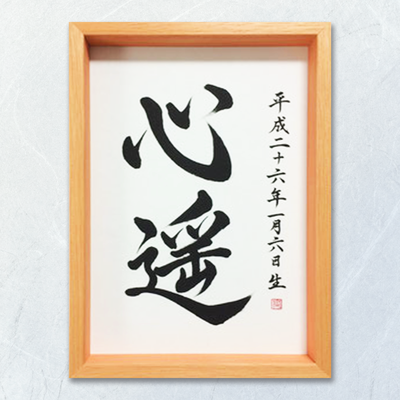 平成二十六年一月六日生
心遥